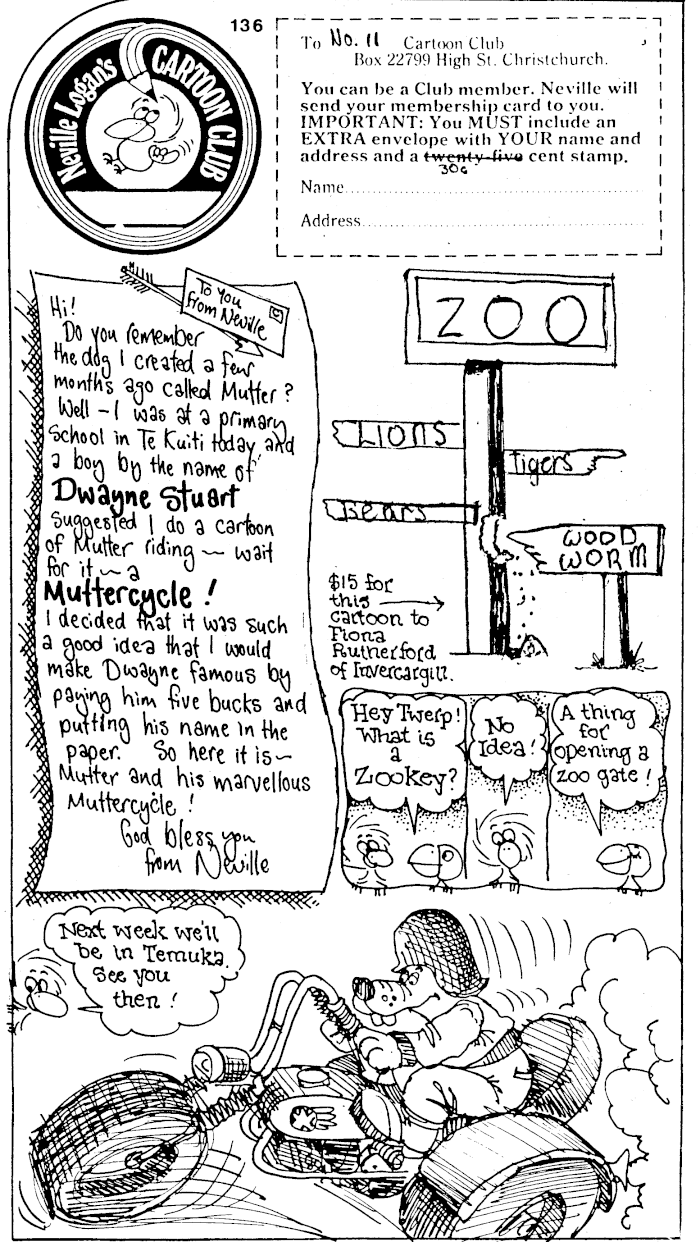 136
Neville Logan's
CARTOON CLUB
To No. 11 Cartoon Club
Box 22799 High St. Christchurch.
You can be a Club member. Neville will
send your membership card to you.
IMPORTANT: You MUST include an
EXTRA envelope with YOUR name and
address and a twenty-five cent stamp.
30c
Name
Address
To You
from Neville
Hi!
Do you remember
the dog I created a few
months ago called Mutter?
Well - I was at a primary
School in Te Kuiti today and
a boy by the name of
Dwayne Stuart
suggested I do a cartoon
of Mutter riding ~ wait
for it ~ a
Muttercycle!
I decided that it was such
a good idea that I would
make Dwayne famous by
paying him five bucks and
putting his name in the
paper. So here it is ~
Mutter and his marvellous
Muttercycle!
God bless you
from Neville
ZOO
LIONS
tigers
Bears
WOOD
WORM
$15 for
this
cartoon to
Fiona
Rutherford
of Invercargill.
Hey Twerp!
What is
a
Zookey?
No
Idea!
A thing
for
opening a
zoo gate!
Next week we'll
be in Temuka.
See you
then!